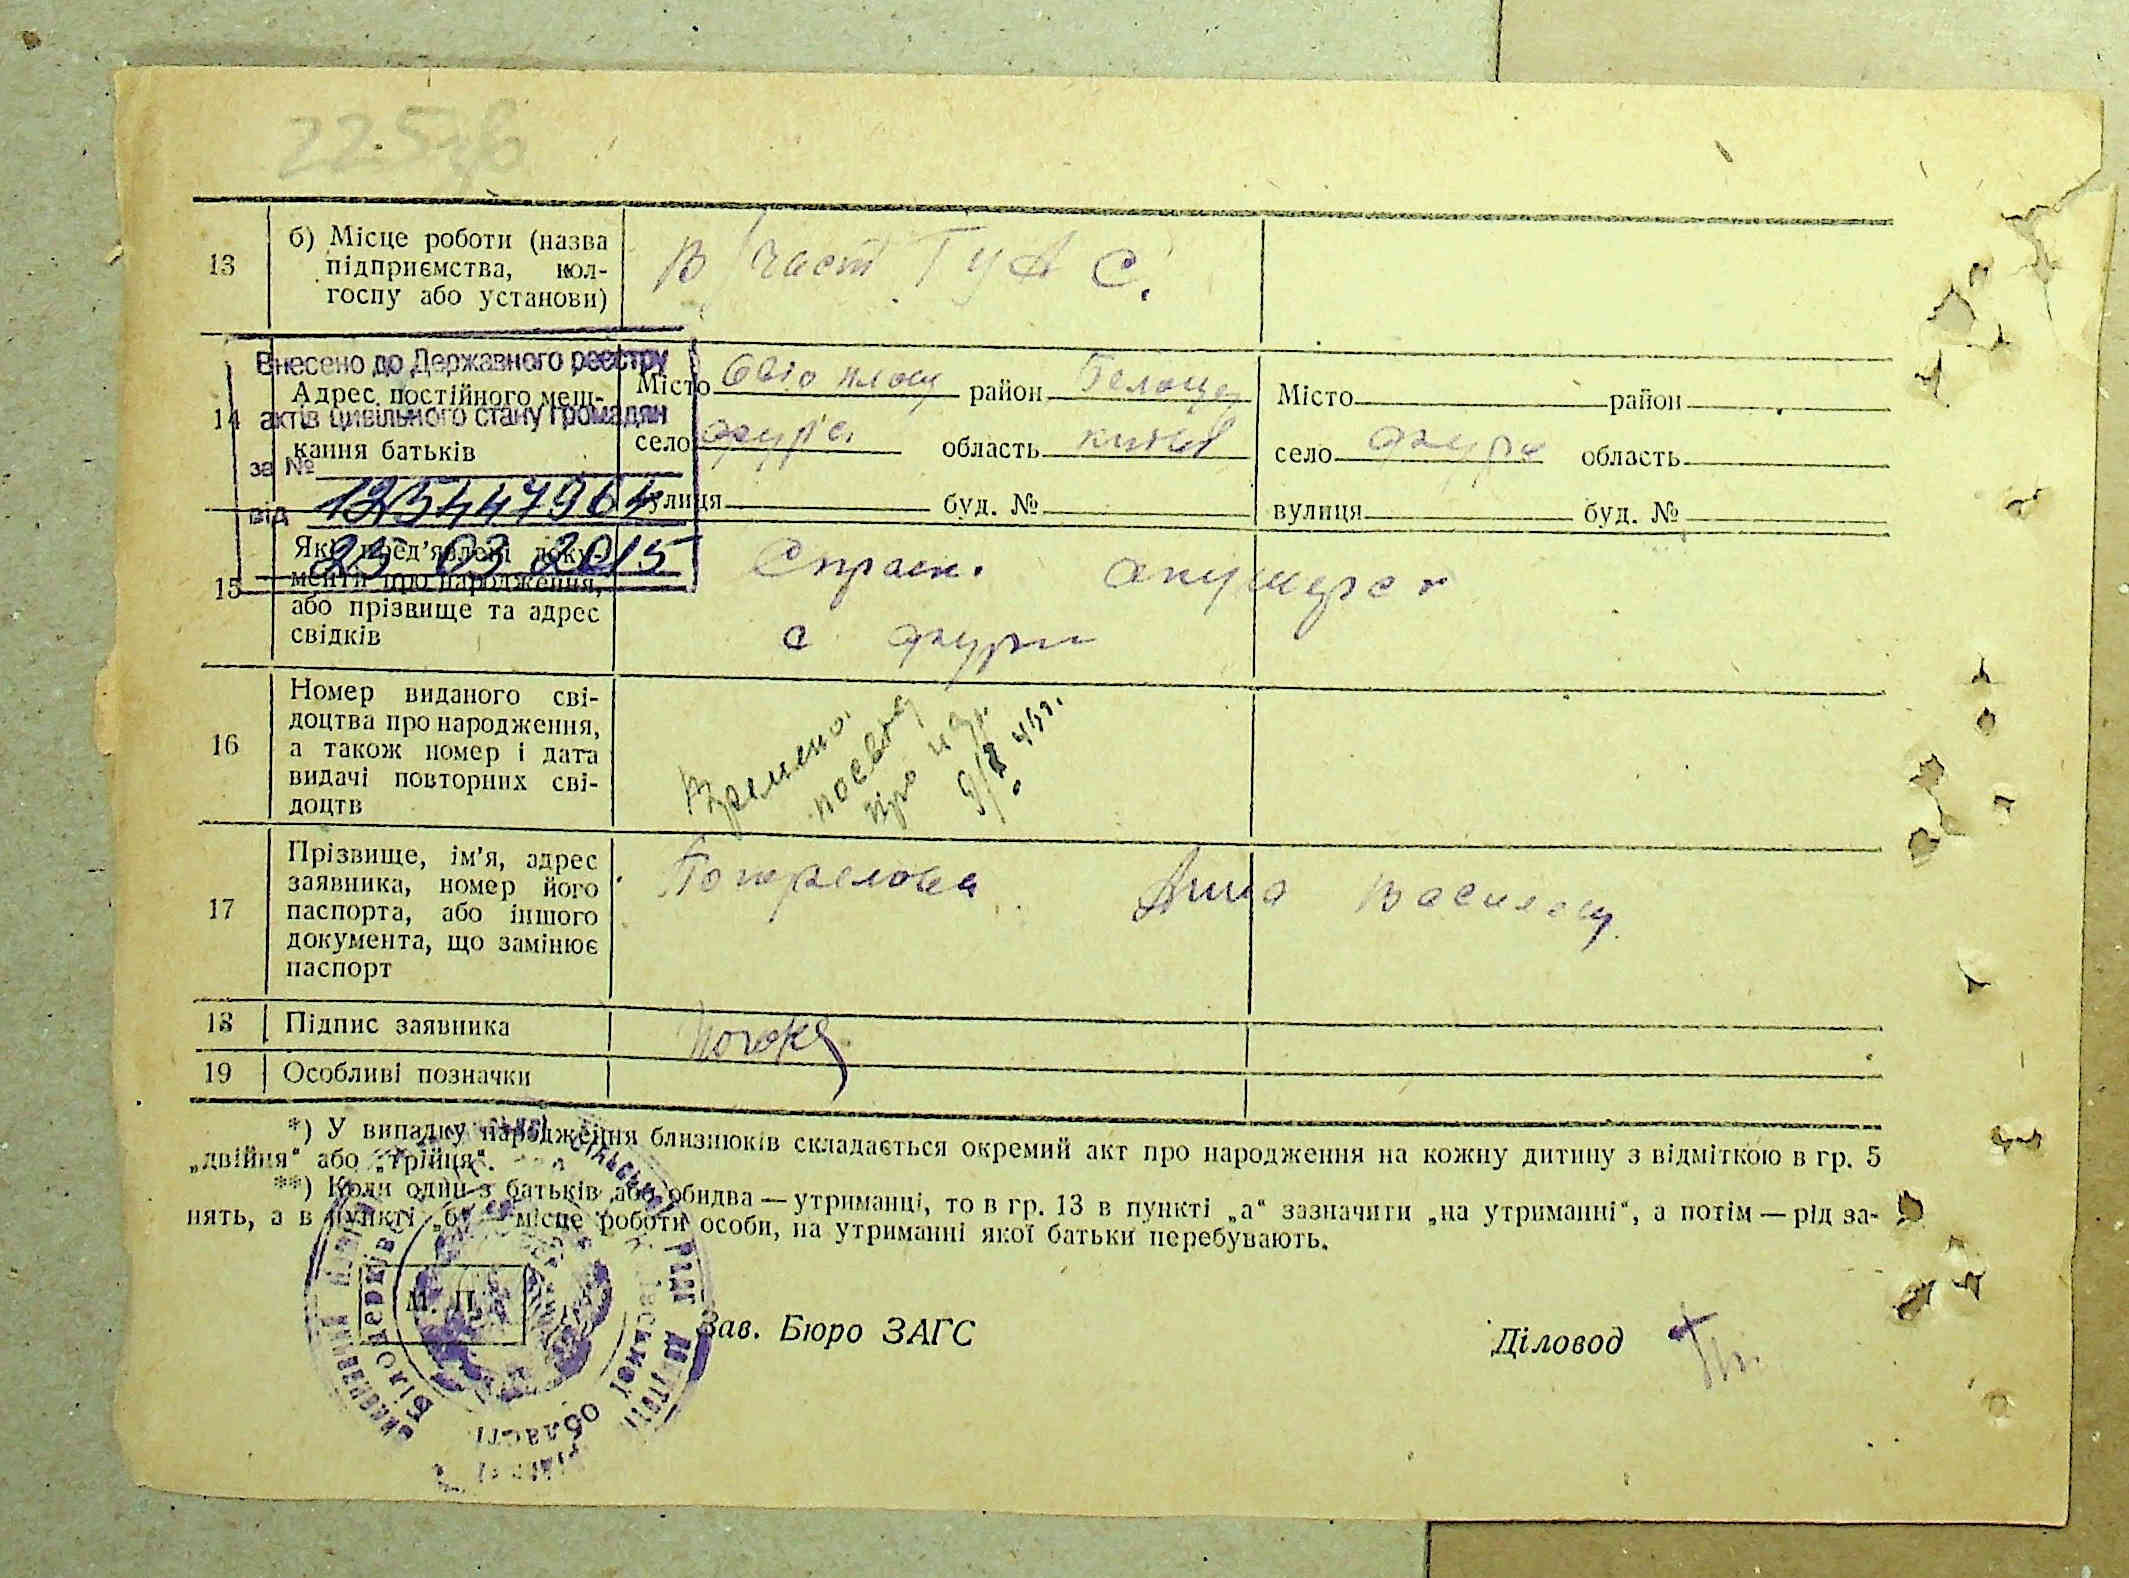 225зв
13
б) Місце роботи (назва
підприємства, кол-
госпу або установи)
В част ГУАС.
Внесено до Державного реєстру
актів цивільного стану громадян
за №
125447964
від 25 03 2015
14
Адрес постійного меш-
кання батьків
Місто район
село область
вулиця буд. №
Місто район
село область
вулиця буд. №
15
Які пред’явлені доку-
менти про народження,
або прізвище та адрес
свідків
Справк. акушерск
16
Номер виданого сві-
доцтва про народження,
а також номер і дата
видачі повторних сві-
доцтв
17
Прізвище, ім’я, адрес
заявника, номер його
паспорта, або іншого
документа, що замінює
паспорт
Погорелова Анна Василец
18 Підпис заявника
19 Особливі позначки
*) У випадку народження близнюків складається окремий акт про народження на кожну дитину з відміткою в гр. 5
„двійня“ або „трійця“.
**) Коли один з батьків або обидва — утриманці, то в гр. 13 в пункті „а“ зазначити „на утриманні“, а потім — рід за-
нять, а в пункті „б“ — місце роботи особи, на утриманні якої батьки перебувають.
М. П.
Зав. Бюро ЗАГС
Діловод
області